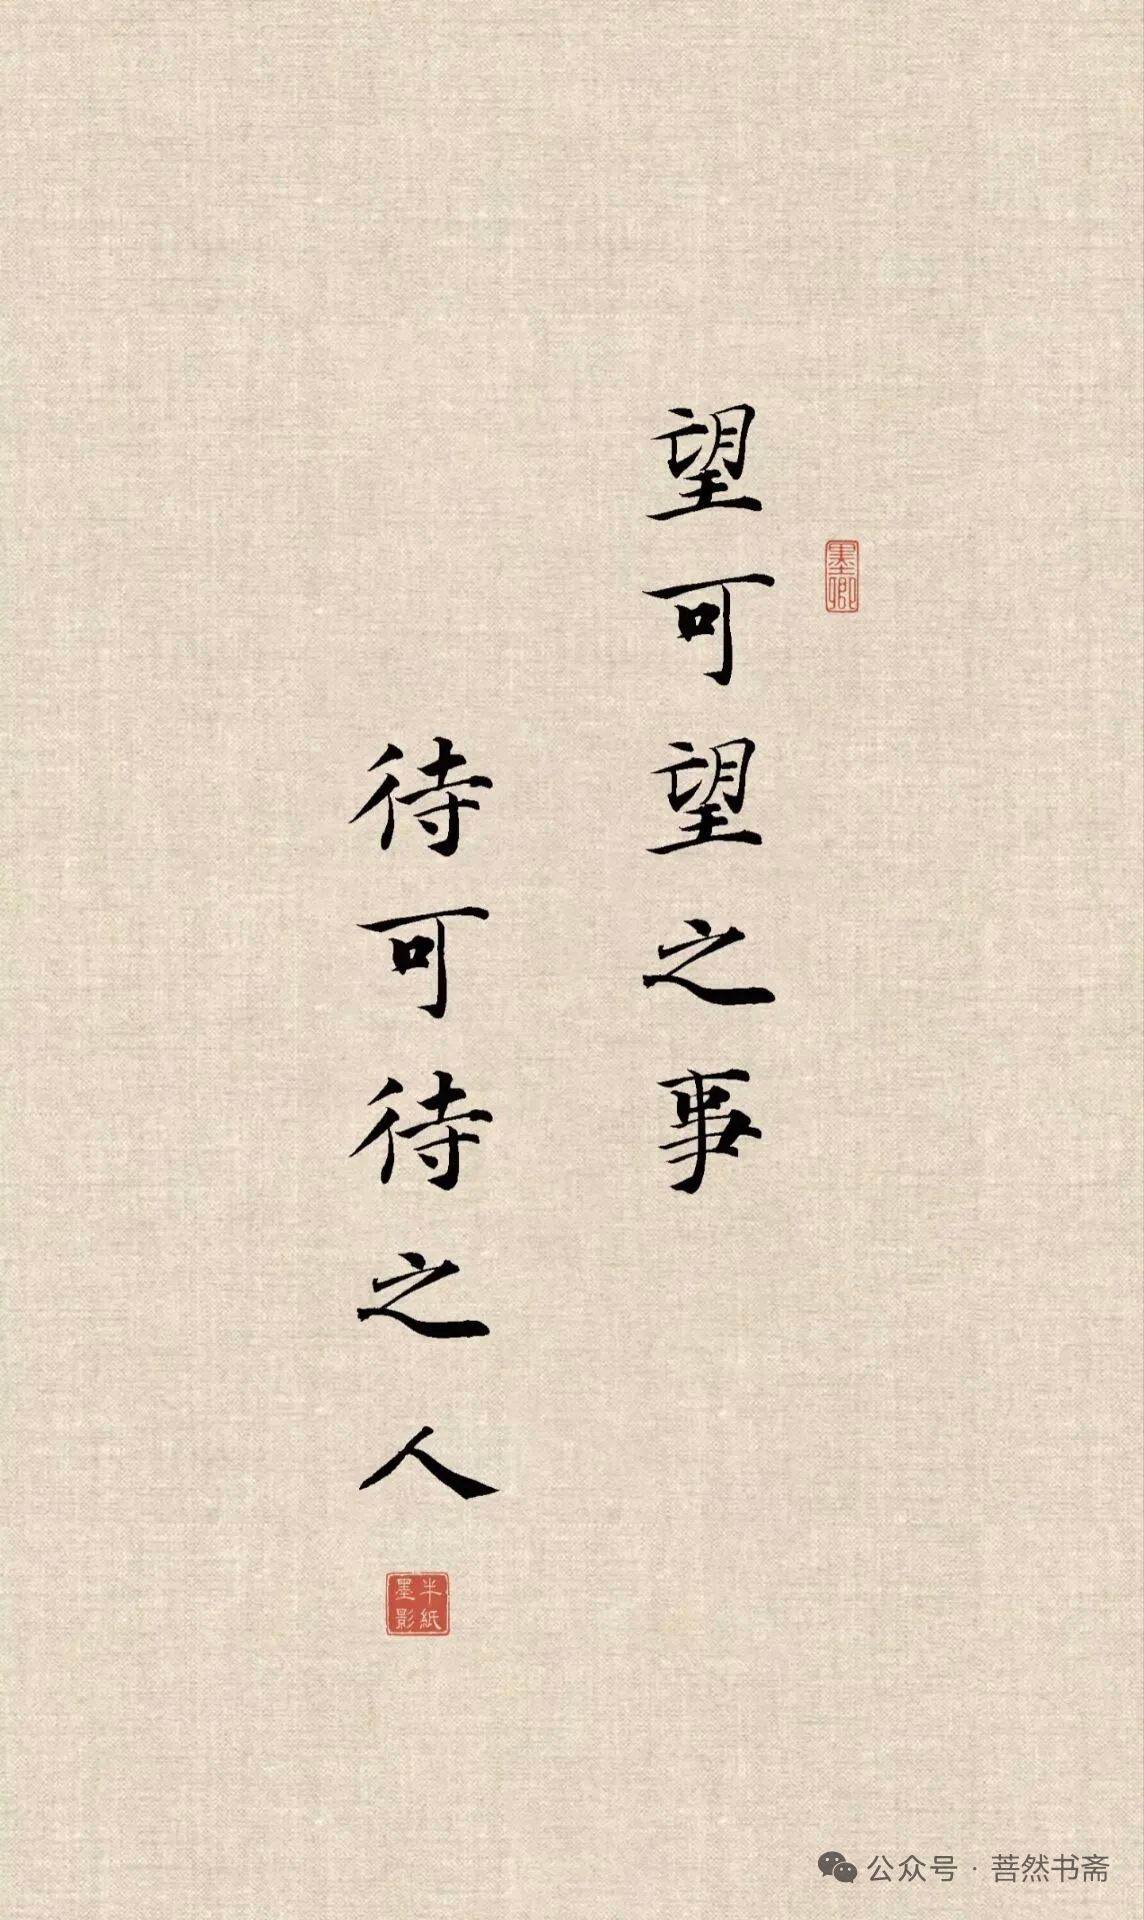 望可望之事
墨卿
待可待之人
半紙
墨影
公众号 · 菩然书斋